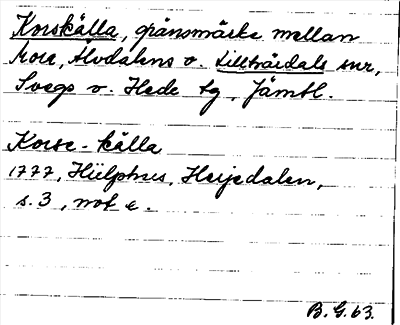 Korskälla, gränsmärke mellan
Mora, Älvdalens o. Lillhärdals snr,
Svegs o. Hede tg, Jämtl.
Korse-källa
1777, Hülphers, Herjedalen,
s. 3, not e.
B. G. 63.